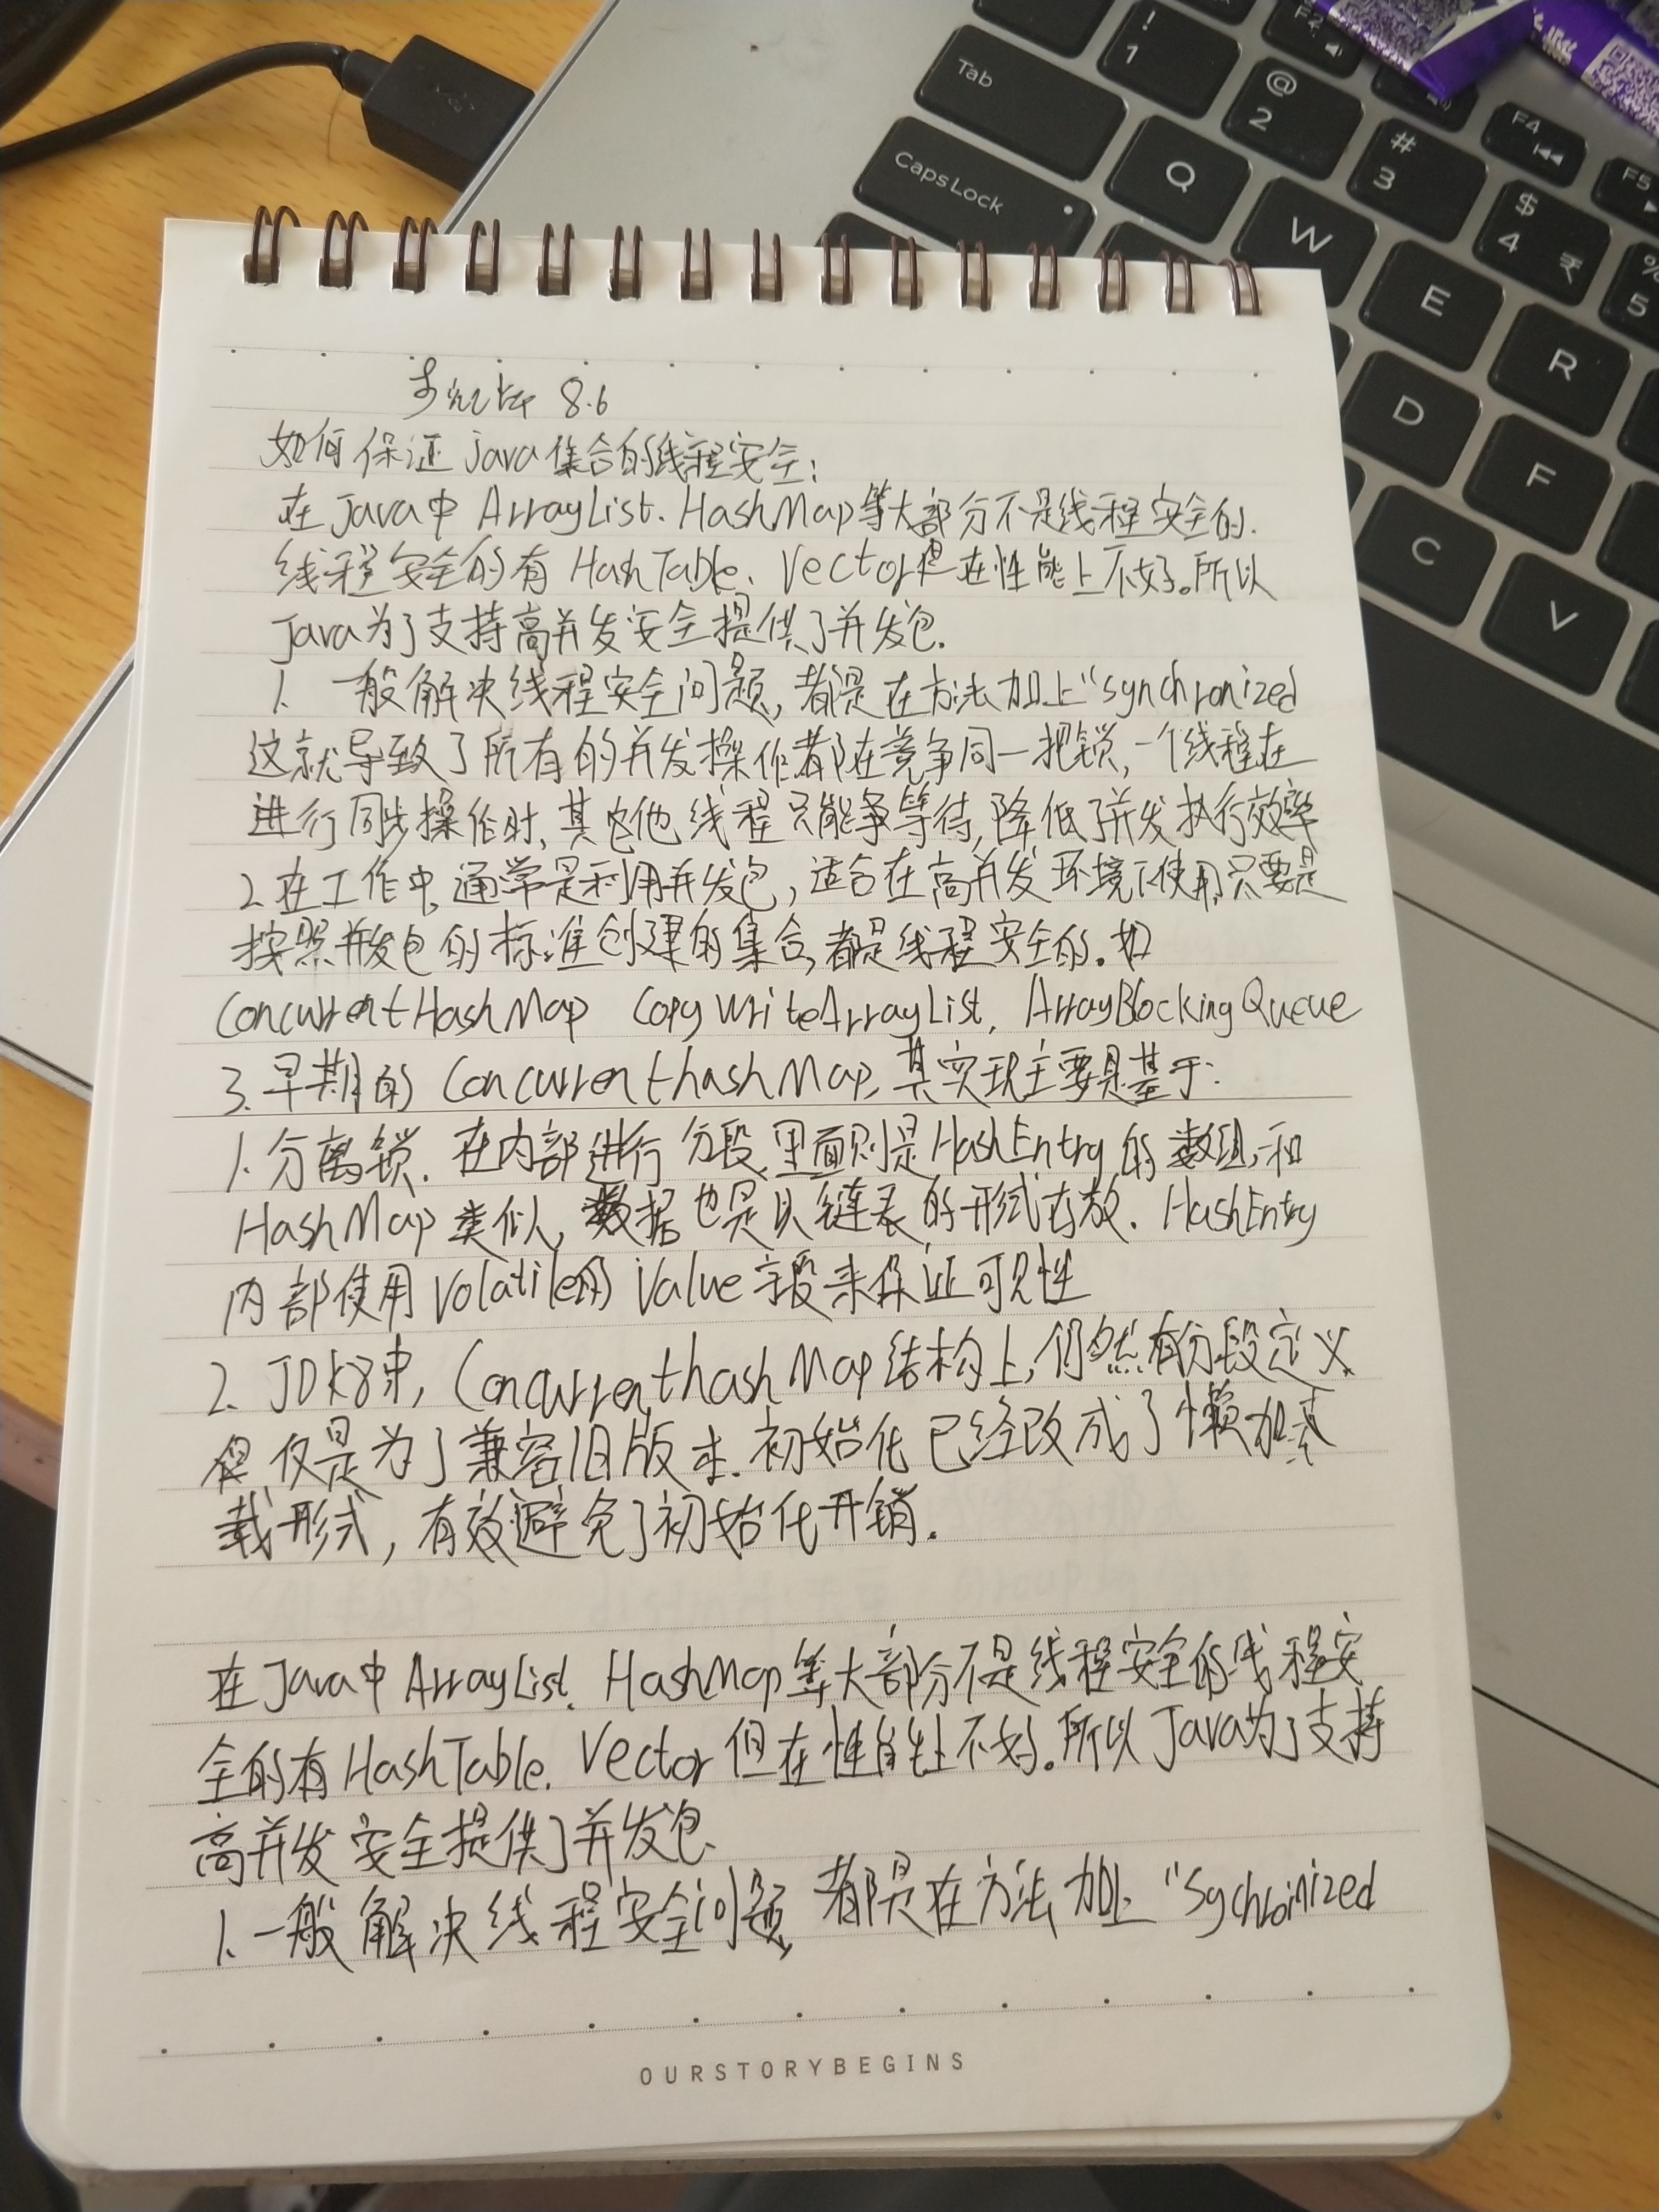 !
1
Tab
@
2
F4
#
3
F5
Caps Lock
Q
$
4
₹
%
5
W
E
R
D
F
C
V
8.6
如何保证java集合的线程安全:
在Java中 ArrayList、HashMap等大部分不是线程安全的.
线程安全的有 HashTable、Vector但在性能上不好。所以
Java为了支持高并发安全提供了并发包.
1. 一般解决线程安全问题,都是在方法加上"synchronized
这就导致了所有的并发操作都在竞争同一把锁,一个线程在
进行同步操作时,其它他线程只能争等待,降低了并发执行效率
2.在工作中,通常是利用并发包,适合在高并发环境下使用,只要是
按照并发包的标准创建的集合,都是线程安全的。如
ConcurrentHashMap CopyWriteArrayList, ArrayBlockingQueue
3.早期的 ConcurrenthashMap,其实现主要是基于:
1.分离锁.在内部进行分段,里面则是HashEntry的数组,和
HashMap类似,数据也是以链表的形式存放. HashEntry
内部使用volatile的 value字段来保证可见性
2. JDK8来,ConcurrenthashMap结构上,仍然有分段定义
但仅是为了兼容旧版本.初始化已经改成了懒加载
载形式,有效避免了初始化开销.
在Java中ArrayList、HashMap等大部分不是线程安全的线程安
全的有HashTable、Vector但在性能上不好。所以Java为了支持
高并发安全提供了并发包、
1.一般解决线程安全问题,都是在方法加上"Sychroinized
OURSTORYBEGINS